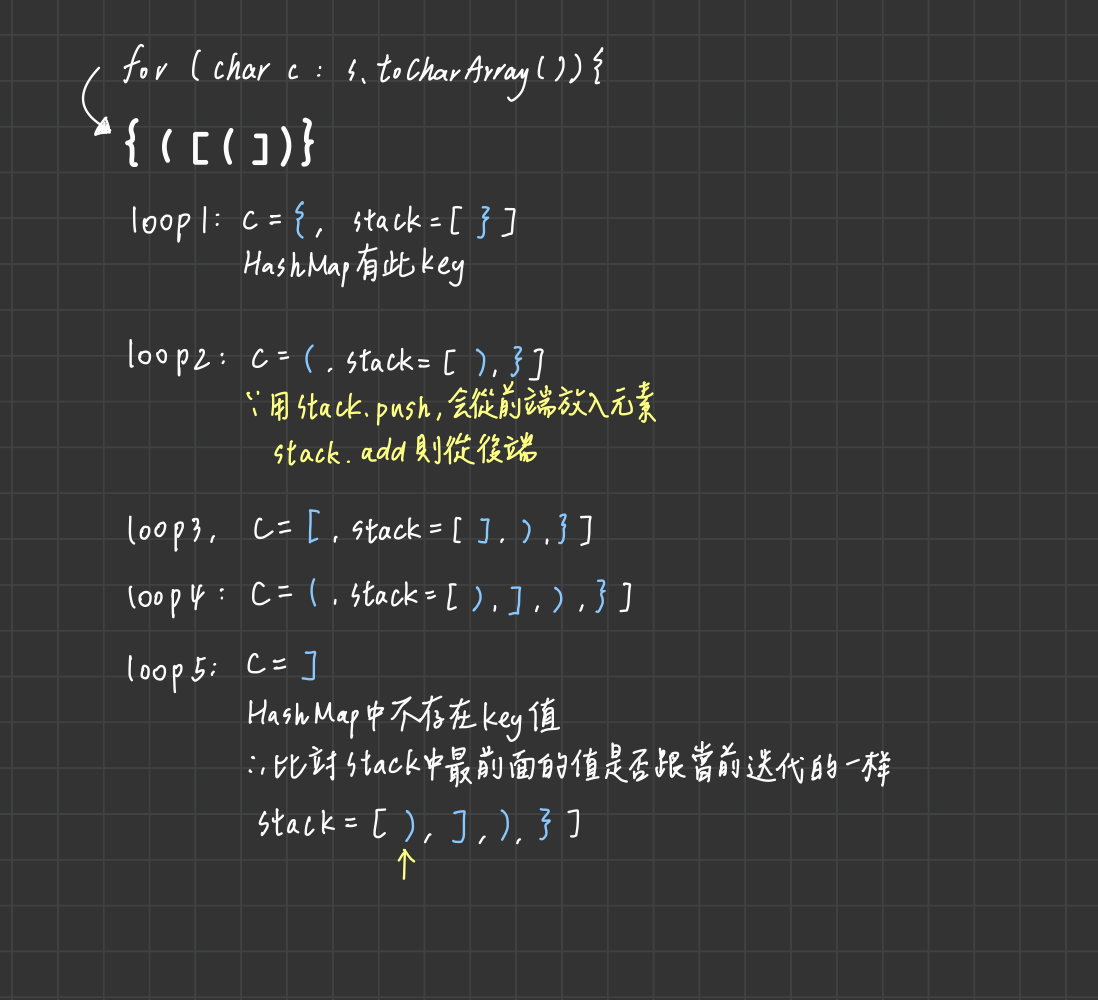 for (char c : s.toCharArray()){
{([(])}
loop1: c={, stack=[ } ]
HashMap有此key
loop2: c=(, stack=[ ),}]
∵用stack.push,会從前端放入元素
stack.add則從後端
loop3, c=[, stack=[ ],),}]
loop4: c=(, stack=[ ),],),} ]
loop5: c=]
HashMap中不存在key值
∴比對stack中最前面的值是否跟當前迭代的一樣
stack=[ ),],),} ]
↑